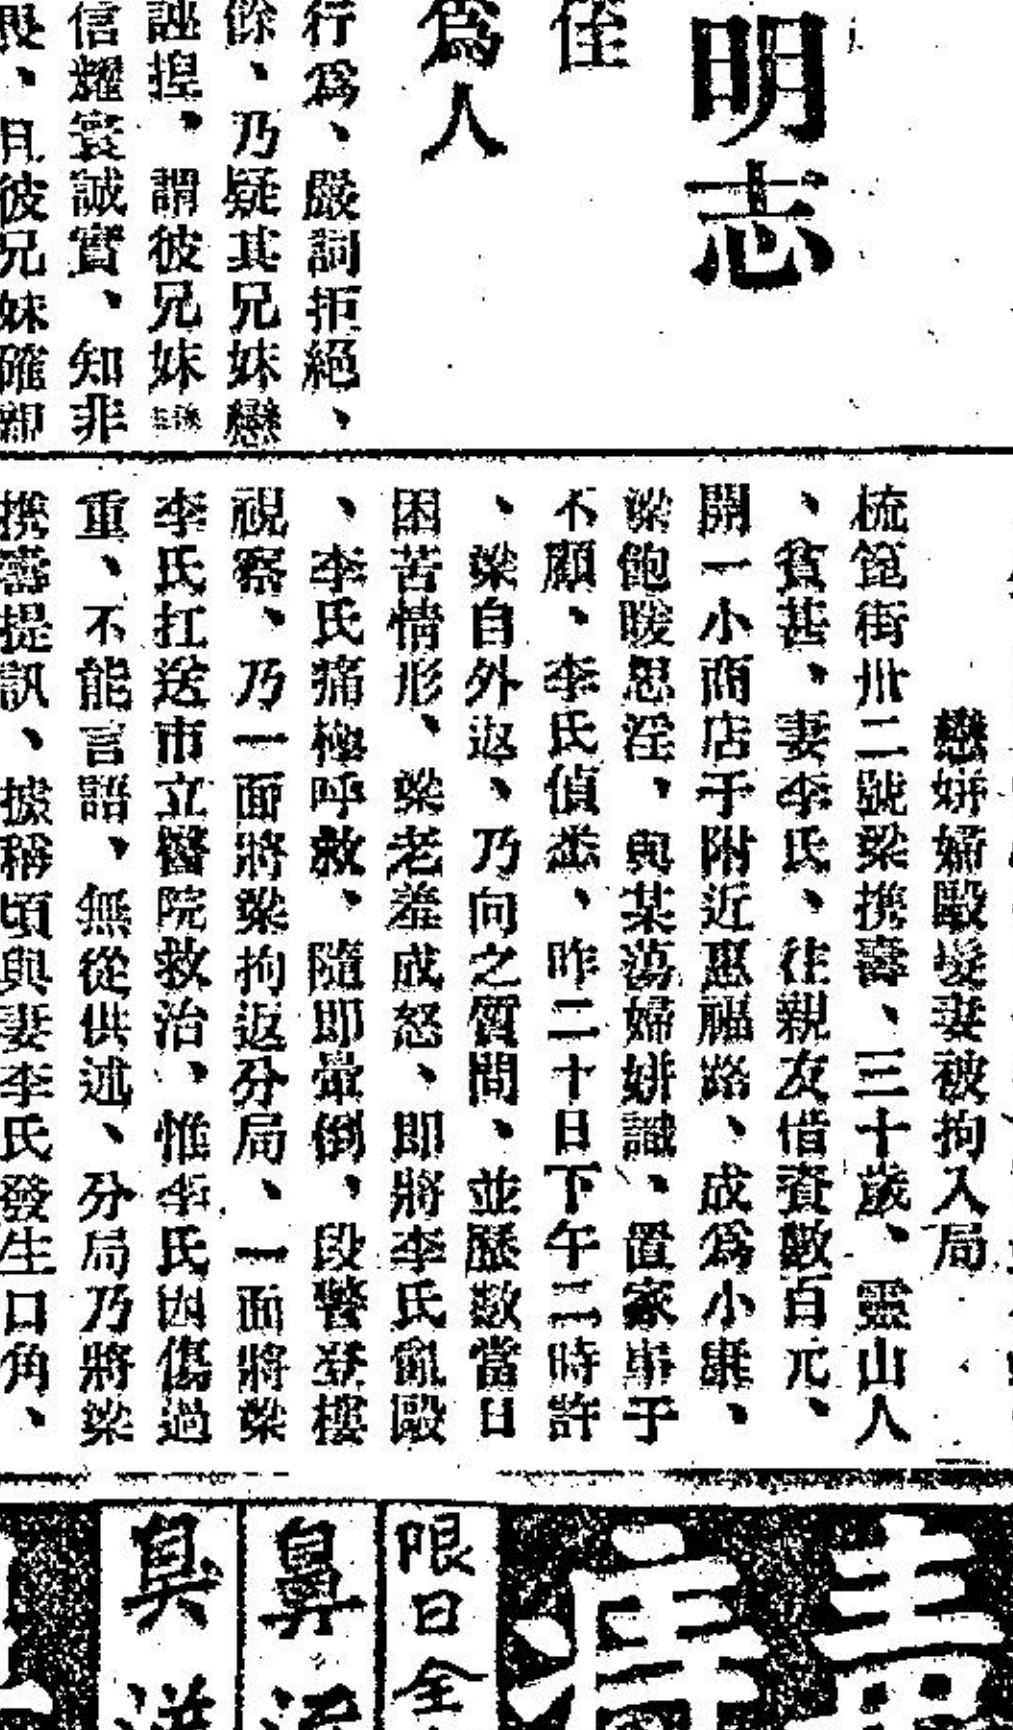 明志
侄
為人
行為、嚴詞拒絕、
餘、乃疑其兄妹戀
誣捏、謂彼兄妹
信耀寰誠實、知非
畏、且彼兄妹確
戀姘婦毆髮妻被拘入局
梳篦街卅二號梁携壽、三十歲、靈山人
、貧甚、妻李氏、往親友借資數百元、
開一小商店于附近惠福路、成為小康、
梁飽暖思淫、與某蕩婦姘識、置家事于
不顧、李氏偵悉、昨二十日下午二時許
、梁自外返、乃向之質問、並歷數當日
困苦情形、梁老羞成怒、即將李氏亂毆
、李氏痛極呼救、隨即暈倒、段警登樓
視察、乃一面將梁拘返分局、一面將梁
李氏扛送市立醫院救治、惟李氏因傷過
重、不能言語、無從供述、分局乃將梁
携壽提訊、據稱頃與妻李氏發生口角、
限日全
鼻
臭